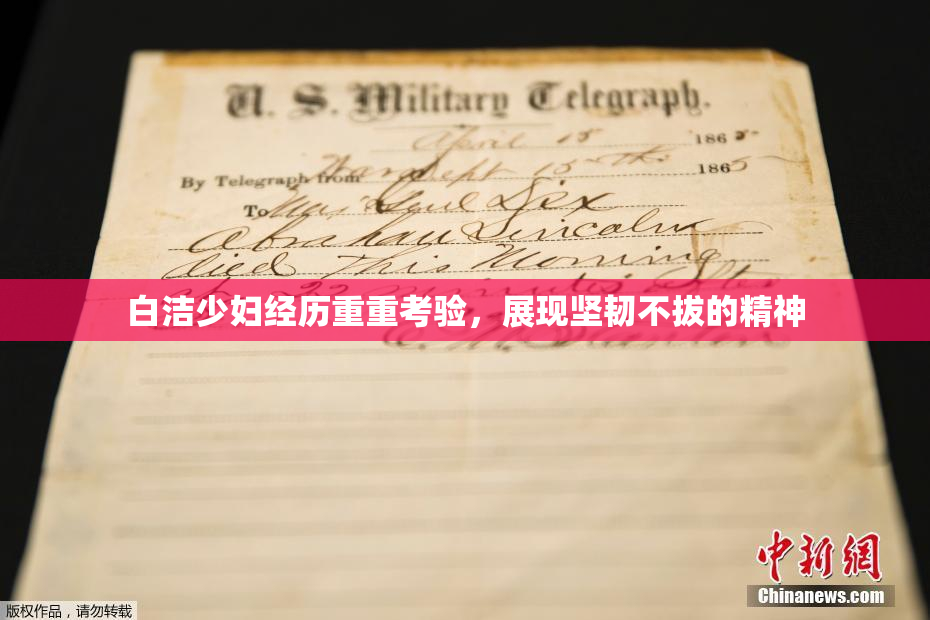 U. S. Military Telegraph.
April 15 1865
By Telegraph from War Dept 15th 1865
To Maj Genl Dix
Abraham Lincoln
died This Morning
白洁少妇经历重重考验，展现坚韧不拔的精神
中新网
Chinanews.com
版权作品，请勿转载